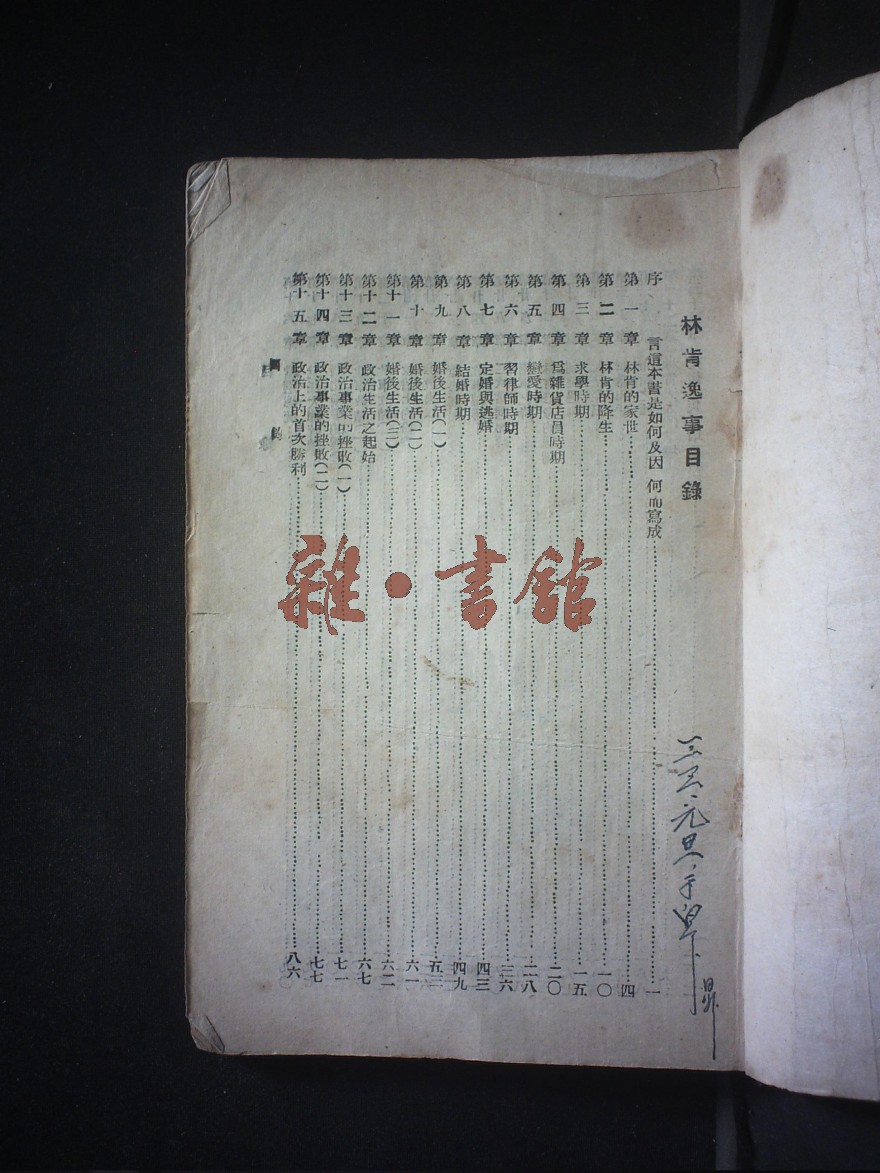 林肯逸事目錄
序　言這本書是如何及因何而寫成………一
第一章　林肯的家世………四
第二章　林肯的降生………一〇
第三章　求學時期………一五
第四章　爲雜貨店員時期………二〇
第五章　戀愛時期………二八
第六章　習律師時期………三六
第七章　定婚與逃婚………四三
第八章　結婚時期………四九
第九章　婚後生活(一)………五三
第十章　婚後生活(二)………六一
第十一章　婚後生活(三)………六二
第十二章　政治生活之起始………六七
第十三章　政治事業的挫敗(一)………七一
第十四章　政治事業的挫敗(二)………七七
第十五章　政治上的首次勝利………八六
元旦
雜·書館